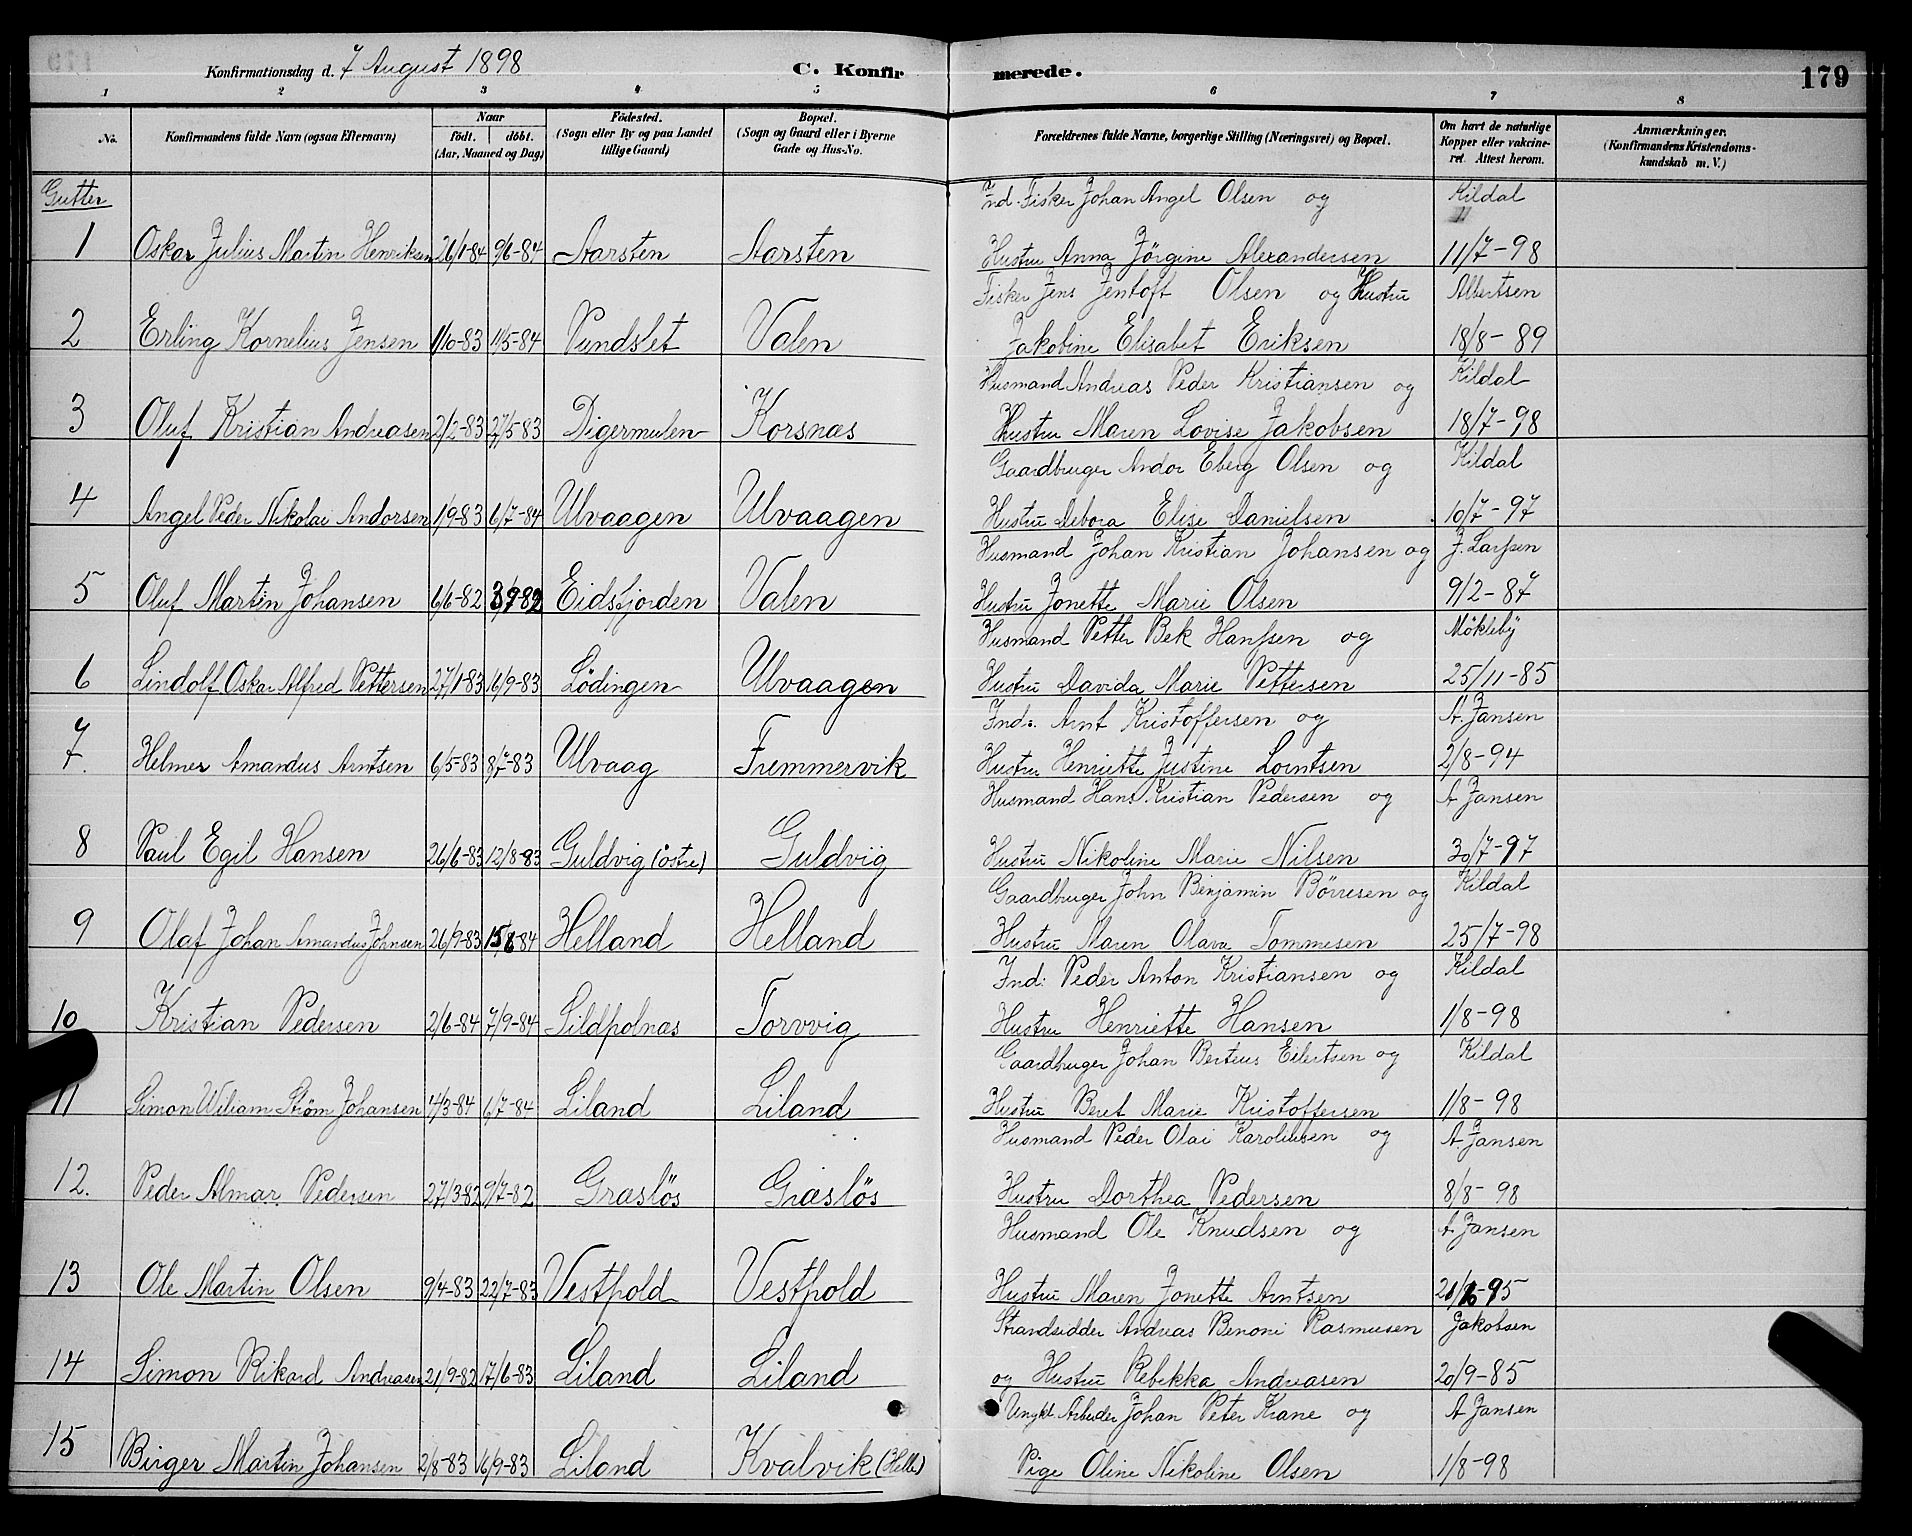 Konfirmationsdag d. 7 August 1898 C. Konfirmerede. 179
1 2 3 4 5 6 7 8
No. Konfirmandens fulde Navn (ogsaa Efternavn) Naar født. døbt. (Aar, Maaned og Dag) Fødested. (Sogn eller By og paa Landet tillige Gaard) Bopæl. (Sogn og Gaard eller i Byerne Gade og Hus-No. Forældrenes fulde Navne, borgerlige Stilling (Næringsvei) og Bopæl. Om havt de naturlige Kopper eller vakcineret. Attest herom. Anmærkninger. (Konfirmandens Kristendomskundskab m. V.)
Gutter
Ind. Fisker Johan Angel Olsen og Kildal
1 Oskar Julius Martin Henriksen 26/1-84 9/6-84 Aarsten Aarsten Hustru Anna Jörgine Alexandersen 11/7-98
Fisker Jens Jentoft Olsen og Hustru Albertsen
2 Erling Kornelius Jensen 1/10-83 11/5-84 Pundslet Valen Jakobine Elisabet Eriksen 18/8-89
Husmand Andreas Peder Kristiansen og Kildal
3 Oluf Kristian Andreasen 2/2-83 27/5-83 Digermulen Korsnæs Hustru Maren Lovise Jakobsen 18/7-98
Gaardbruger Andor Eberg Olsen og Kildal
4 Angel Peder Nikolai Andorsen 1/9-83 6/7-84 Ulvaagen Ulvaagen Hustru Debora Elise Danielsen 10/7-97
Husmand Johan Kristian Johansen og J. Larssen
5 Oluf Martin Johansen 6/6-82 3/9-82 Eidsfjorden Valen Hustru Jonette Marie Olsen 9/2-87
Husmand Petter Bek Hanssen og Mökleby
6 Lindolf Oskar Alfred Pettersen 27/1-83 16/9-83 Lödingen Ulvaagen Hustru Davida Marie Pettersen 25/11-85
Ind. Arnt Kristoffersen og A. Jansen
7. Helmer Amandus Arntsen 6/5-83 8/7-83 Ulvaag Fremmervik Hustru Henriette Justine Lorntsen 2/8-94
Husmand Hans Kristian Pedersen og A Jansen
8 Paul Egil Hansen 26/6-83 12/8-83 Guldvig (östre) Guldvig Hustru Nikoline Marie Nilsen 30/7-97
Gaardbruger John Benjamin Börresen og Kildal
9 Olaf Johan Amandus Johnsen 26/9-83 15/6-84 Helland Helland Hustru Maren Olava Tommesen 25/7-98
Ind: Peder Anton Kristiansen og Kildal
10 Kristian Pedersen 2/6-84 7/9-84 Sildpolnæs Torvvig Hustru Henriette Hansen 1/8-98
Gaardbruger Johan Berteus Eilertsen og Kildal
11 Simon Wiliam Strøm Johansen 4/3-84 6/7-84 Liland Liland Hustru Beret Marie Kristoffersen 1/8-98
Husmand Peder Olai Karoliusen og A. Jansen
12. Peder Almar Pedersen 27/3-82 9/7-82 Græslös Græslös Hustru Dorthea Pedersen 8/8-98
Husmand Ole Knudsen og A Jansen
13 Ole Martin Olsen 9/4-83 22/7-83 Vestpold Vestpold Hustru Maren Jonette Arntsen
Strandsidder Andreas Benoni Rasmusen Jakobsen
14 Simon Rikard Andreasen 21/9-82 17/6-83 Liland Liland og Hustru Rebekka Andreasen 20/9-85
Ungkt. Arbeider Johan Peter Krane og A Jansen
15 Birger Martin Johansen 2/8-83 16/9-83 Liland Kvalvik (Helle) Pige Oline Nikoline Olsen 1/8-98